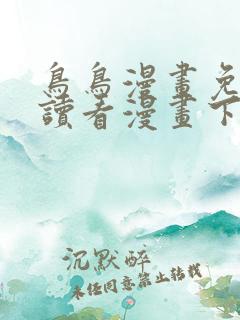 鳥鳥漫畫免
讀看漫畫下
沉默醉
未任同意禁止转载